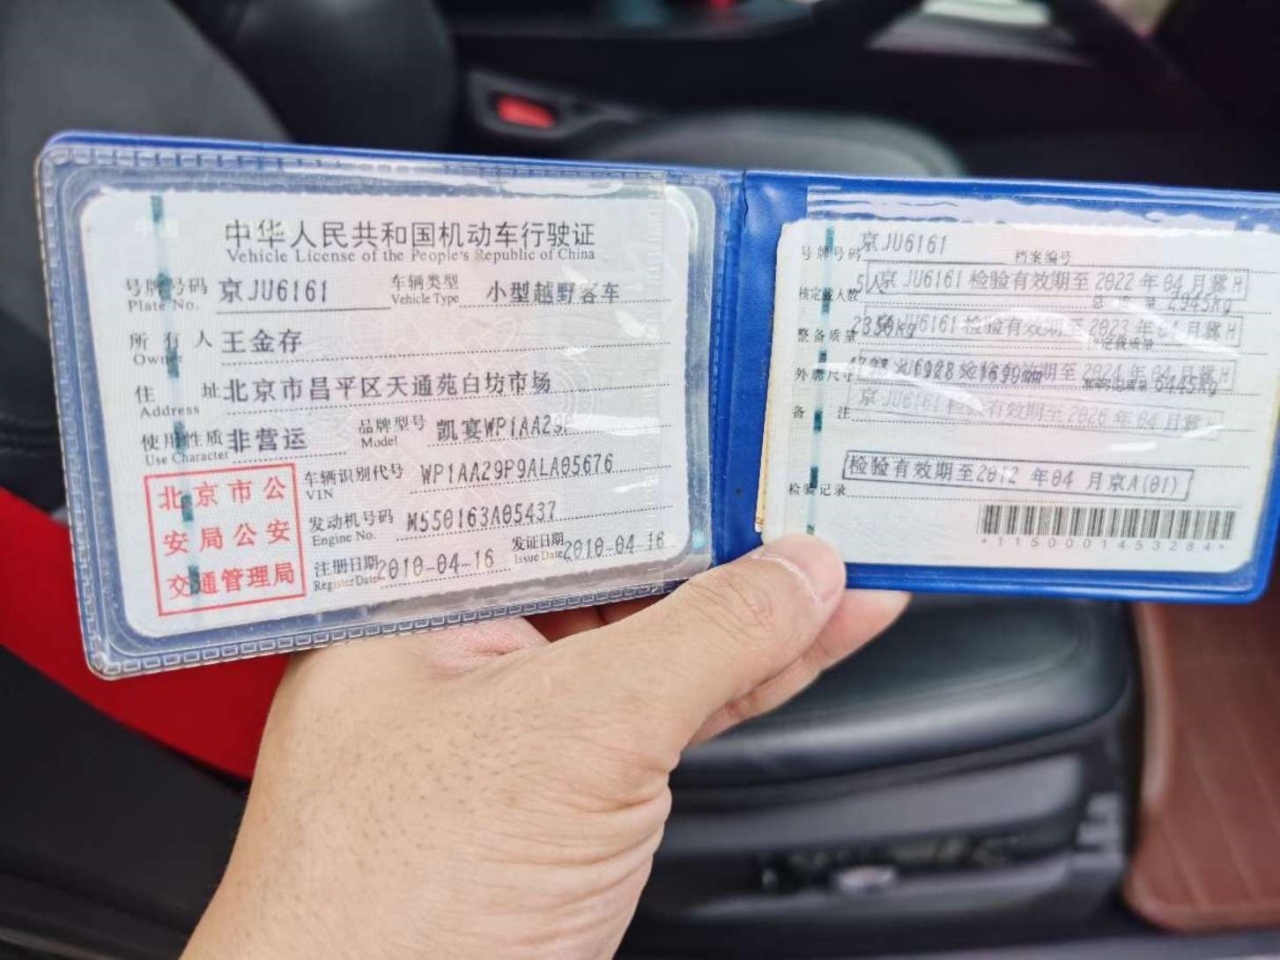 中华人民共和国机动车行驶证
Vehicle License of the People's Republic of China
号牌号码 京JU6161 车辆类型 小型越野客车
Plate No. Vehicle Type
所有人 王金存
Owner
住址 北京市昌平区天通苑白坊市场
Address
使用性质 非营运 品牌型号 凯宴WP1AA29P
Use Character Model
北京市公
安局公安
交通管理局
车辆识别代号 WP1AA29P9ALA05676
VIN
发动机号码 M550163A05437
Engine No.
注册日期 2010-04-16 发证日期 2010-04-16
Register Date Issue Date
号牌号码 京JU6161 档案编号
核定载人数 5人 总质量 2945kg
京JU6161 检验有效期至2022年04月
整备质量
京JU6161 检验有效期至2023年04月
外廓尺寸
检验有效期至2024年04月
京JU6161 检验有效期至2026年04月
备注
检验有效期至2012年04月京A(01)
检验记录
*1150001453284*